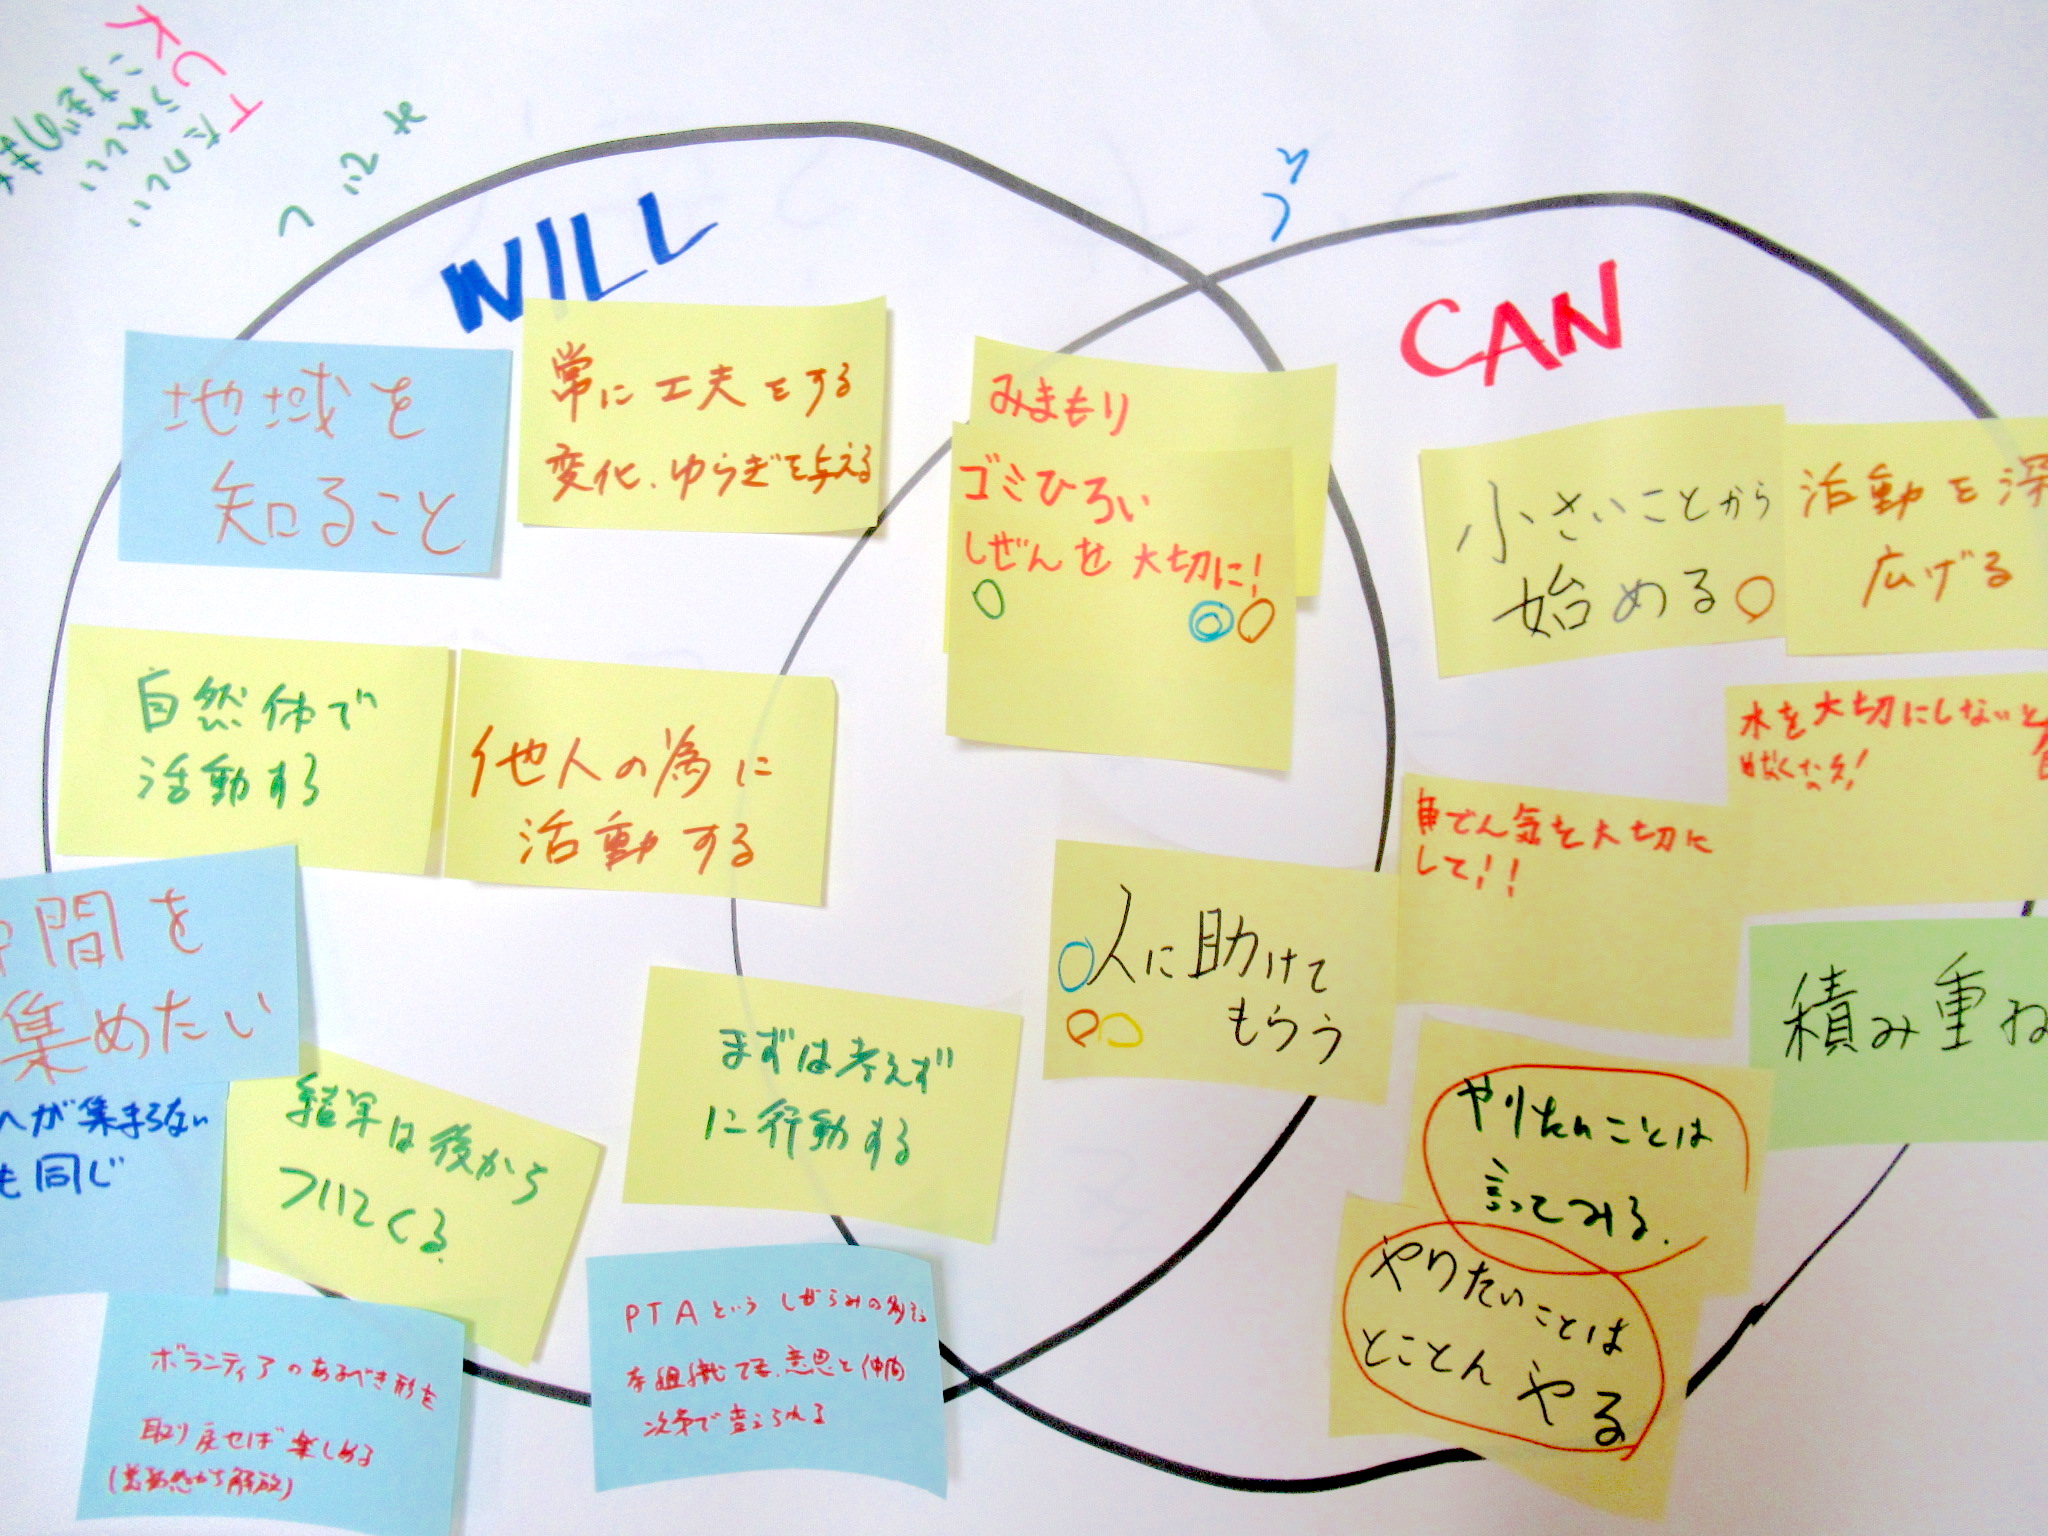 K
C
T
WILL
CAN
地域を
知ること
常に工夫をする
変化、ゆらぎを与える
みまもり
ゴミひろい
しぜんを大切に!
小さいことから
始める
活動を深
広げる
自然体で
活動する
他人の為に
活動する
水を大切にしないと
でん気を大切に
して!!
間を
集めたい
が集まらない
も同じ
人に助けて
もらう
積み重ね
まずは考えず
に行動する
結果は後から
ついてくる
やりたいことは
言ってみる.
やりたいことは
とことんやる
PTAという しがらみの多そう
な組織でも、意思と仲間
次第で変えられる
ボランティアのあるべき形を
取り戻せば楽しめる
(義務感から解放)